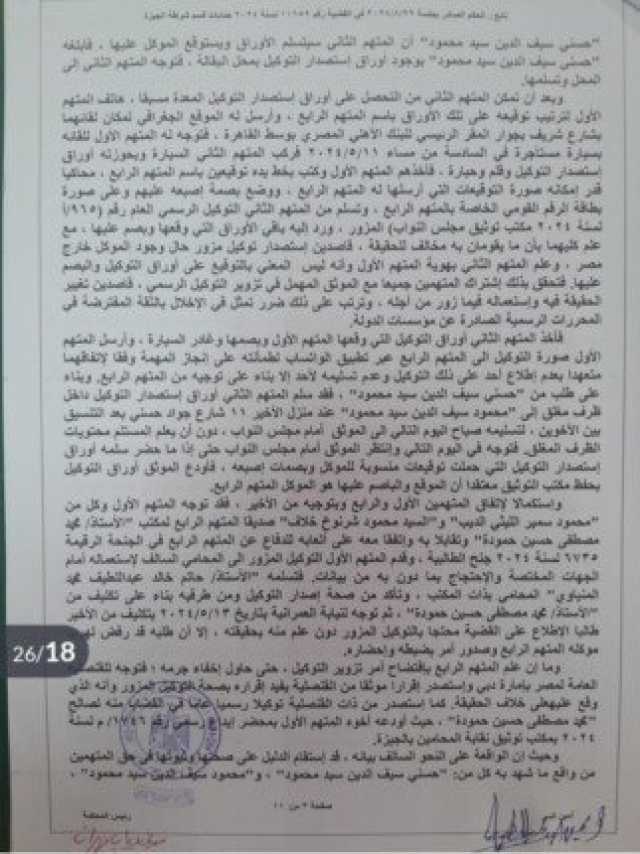 تابع: الحكم الصادر بجلسة ٢٠٢٤/٨/٢٦ في القضية رقم ١١١٥٢ لسنة ٢٠٢٤ جنايات قسم شرطة الجيزة
"حسني سيف الدين سيد محمود" أن المتهم الثاني سيتسلم الأوراق ويستوقع الموكل عليها ، فأبلغه
"حسني سيف الدين سيد محمود" بوجود أوراق إستصدار التوكيل بمحل البقالة ، فتوجه المتهم الثاني إلى
المحل وتسلمها.
وبعد أن تمكن المتهم الثاني من التحصل على أوراق إستصدار التوكيل المعدة مسبقا ، هاتف المتهم
الأول لترتيب توقيعه على تلك الأوراق باسم المتهم الرابع ، وأرسل له الموقع الجغرافي لمكان لقائهما
بشارع شريف بجوار المقر الرئيسي للبنك الأهلي المصري بوسط القاهرة ، فتوجه له المتهم الأول للقائه
بسيارة مستأجرة في السادسة من مساء ٢٠٢٤/٥/١١ فركب المتهم الثاني السيارة وبحوزته أوراق
إستصدار التوكيل وقلم وحبارة ، فأخذهم المتهم الأول وكتب بخط يده توقيعين باسم المتهم الرابع ، محاكيا
قدر إمكانه صورة التوقيعات التي أرسلها له المتهم الرابع ، ووضع بصمة إصبعه عليهم وعلى صورة
بطاقة الرقم القومي الخاصة بالمتهم الرابع ، وتسلم من المتهم الثاني التوكيل الرسمي العام رقم (٩٦٥/أ
لسنة ٢٠٢٤ مكتب توثيق مجلس النواب) المزور ، ورد إليه باقي الأوراق التي وقعها وبصم عليها ، مع
علم كليهما بأن ما يقومان به مخالف للحقيقة ، قاصدين إستصدار توكيل مزور حال وجود الموكل خارج
مصر ، وعلم المتهم الثاني بهوية المتهم الأول وأنه ليس المعني بالتوقيع على أوراق التوكيل والبصم
عليها. فتحقق بذلك إشتراك المتهمين جميعا مع الموثق المهمل في تزوير التوكيل الرسمي ، قاصدين تغيير
الحقيقة فيه وإستعماله فيما زور من أجله ، وترتب على ذلك ضرر تمثل في الإخلال بالثقة المفترضة في
المحررات الرسمية الصادرة عن مؤسسات الدولة.
فأخذ المتهم الثاني أوراق التوكيل التي وقعها المتهم الأول وبصمها وغادر السيارة ، وأرسل المتهم
الأول صورة التوكيل الى المتهم الرابع عبر تطبيق الواتساب لطمأنته على إنجاز المهمة وفقا لإتفاقهما
متعهدا بعدم إطلاع أحد على ذلك التوكيل وعدم تسليمه لأحد إلا بناء على توجيه من المتهم الرابع. وبناء
على طلب من "حسني سيف الدين سيد محمود" ، فقد سلم المتهم الثاني أوراق إستصدار التوكيل داخل
ظرف مغلق إلى "محمود سيف الدين سيد محمود" عند منزل الأخير ١١ شارع جواد حسني بعد التنسيق
بين الأخوين ، لتسليمه صباح اليوم التالي الى الموثق أمام مجلس النواب ، دون أن يعلم المستلم محتويات
الظرف المغلق. فتوجه في اليوم التالي وإنتظر الموثق أمام مجلس النواب حتى إذا ما حضر سلمه أوراق
إستصدار التوكيل التي حملت توقيعات منسوبة للموكل وبصمات إصبعه ، فأودع الموثق أوراق التوكيل
بحفظ مكتب التوثيق معتقدا أن الموقع والباصم عليها هو الموكل المتهم الرابع.
وإستكمالا لإتفاق المتهمين الأول والرابع وبتوجيه من الأخير ، فقد توجه المتهم الأول وكل من
"محمود سمير الليثي الديب" و"السيد محمود شرنوخ خلاف" صديقا المتهم الرابع لمكتب "الأستاذ/ محمد
مصطفى حسين حمودة" وتقابلا به واتفقا معه على أتعابه للدفاع عن المتهم الرابع في الجنحة الرقيمة
٦٧٣٥ لسنة ٢٠٢٤ جنح الطالبية ، وقدم المتهم الأول التوكيل المزور الى المحامي السالف لإستعماله أمام
الجهات المختصة والإحتجاج بما دون به من بيانات. فتسلمه "الأستاذ/ حاتم خالد عبداللطيف محمد
المنياوي" المحامي بذات المكتب ، وتأكد من صحة إصدار التوكيل ومن طرفيه بناء على تكليف من
"الأستاذ/ محمد مصطفى حسين حمودة" ، ثم توجه لنيابة العمرانية بتاريخ ٢٠٢٤/٥/١٣ بتكليف من الأخير
طالبا الإطلاع على القضية محتجا بالتوكيل المزور دون علم منه بحقيقته ، إلا أن طلبه قد رفض
موكله المتهم الرابع وصدور أمر بضبطه وإحضاره.
وما إن علم المتهم الرابع بإفتضاح أمر تزوير التوكيل ، حتى حاول إخفاء جرمه ؛ فتوجه للقنصلية
العامة لمصر بإمارة دبي وإستصدر إقرارا موثقا من القنصلية يفيد إقراره بصحة التوكيل المزور وأنه الذي
وقع عليه على خلاف الحقيقة. كما استصدر من ذات القنصلية توكيلا رسميا عاما في القضايا منه لصالح
"محمد مصطفى حسين حمودة" ، حيث أودعه أخوه المتهم الأول بمحضر إيداع رسمي رقم ١٧٤٦/م لسنة
٢٠٢٤ بمكتب توثيق نقابة المحامين بالجيزة.
وحيث إن الواقعة على النحو السالف بيانه ، قد إستقام الدليل على صحتها وثبوتها في حق المتهمين
من واقع ما شهد به كل من: "حسني سيف الدين سيد محمود" ، و"محمود سيف الدين سيد محمود" ،
صفحة ٣ من ١١
رئيس المحكمة
26/18